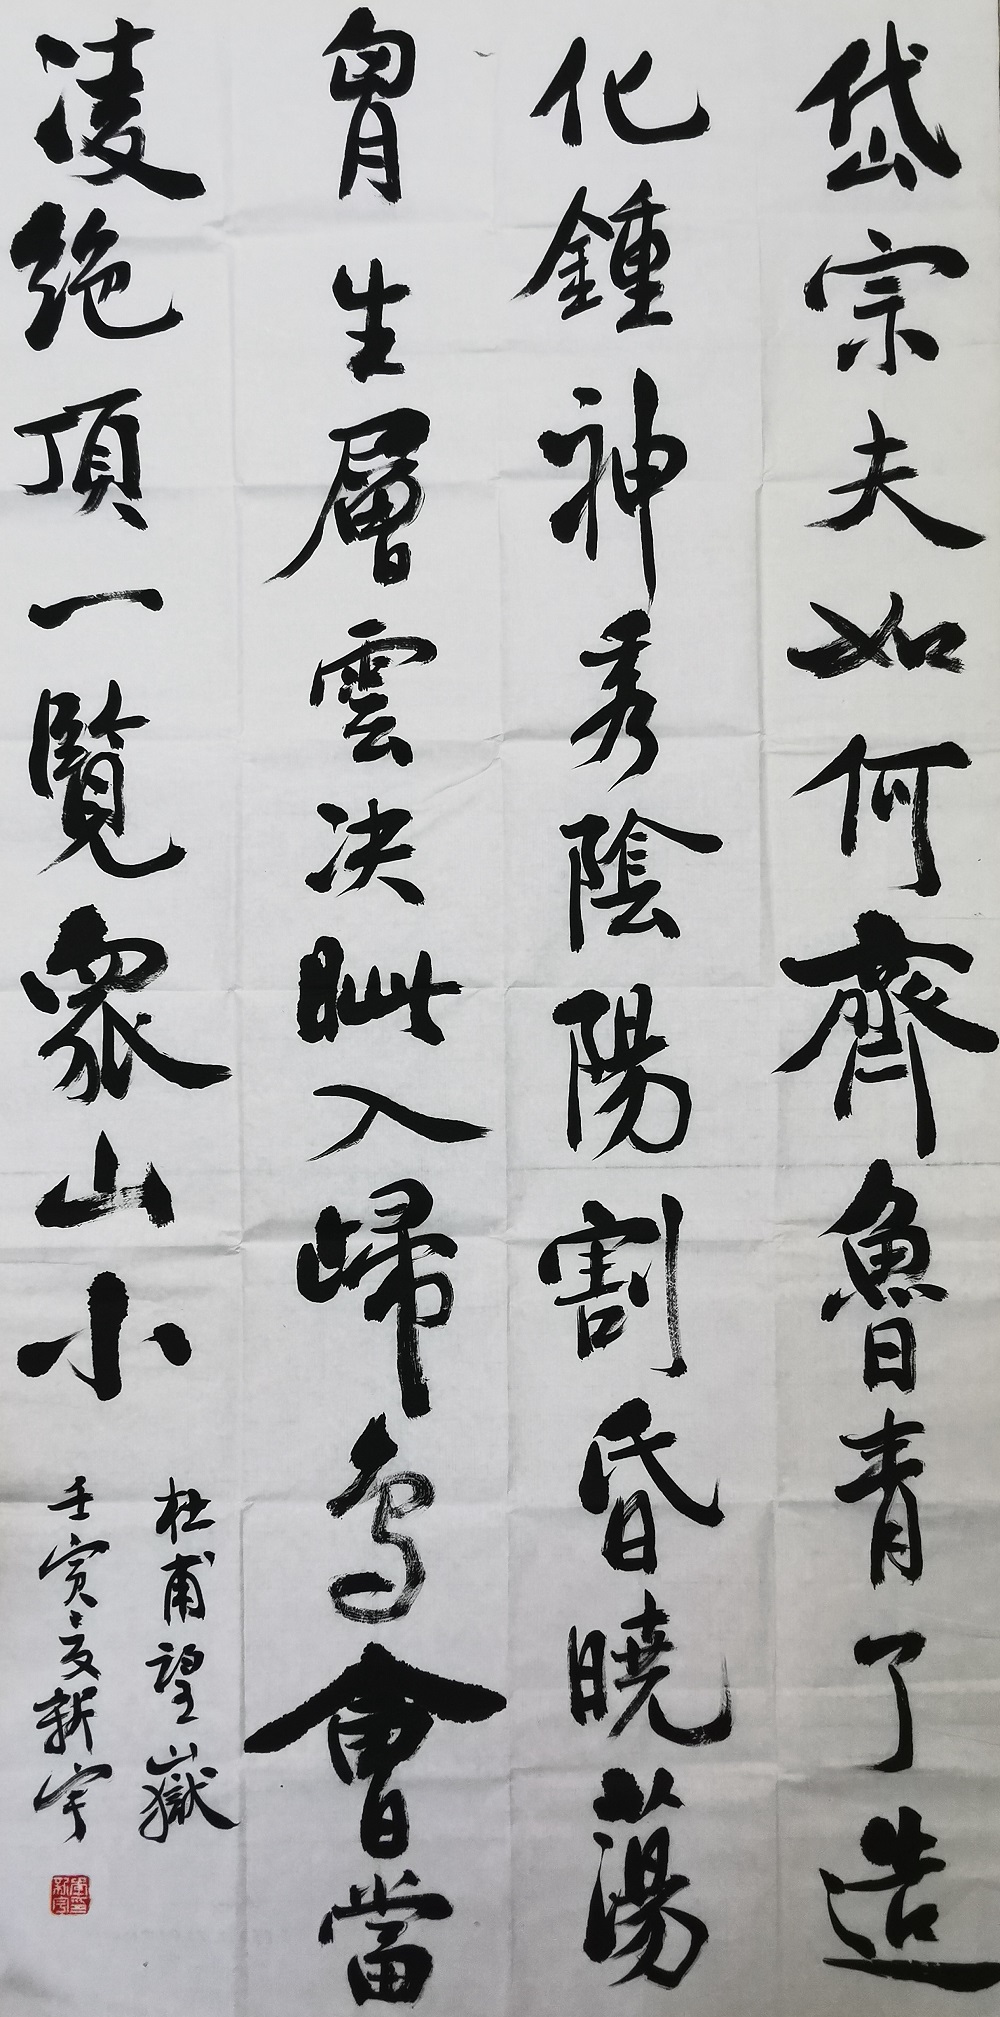 岱宗夫如何齊魯青了造
化鍾神秀陰陽割昏曉蕩
胷生層雲决眦入歸鳥會當
凌絕頂一覽衆山小
杜甫望嶽
壬寅夏新宇